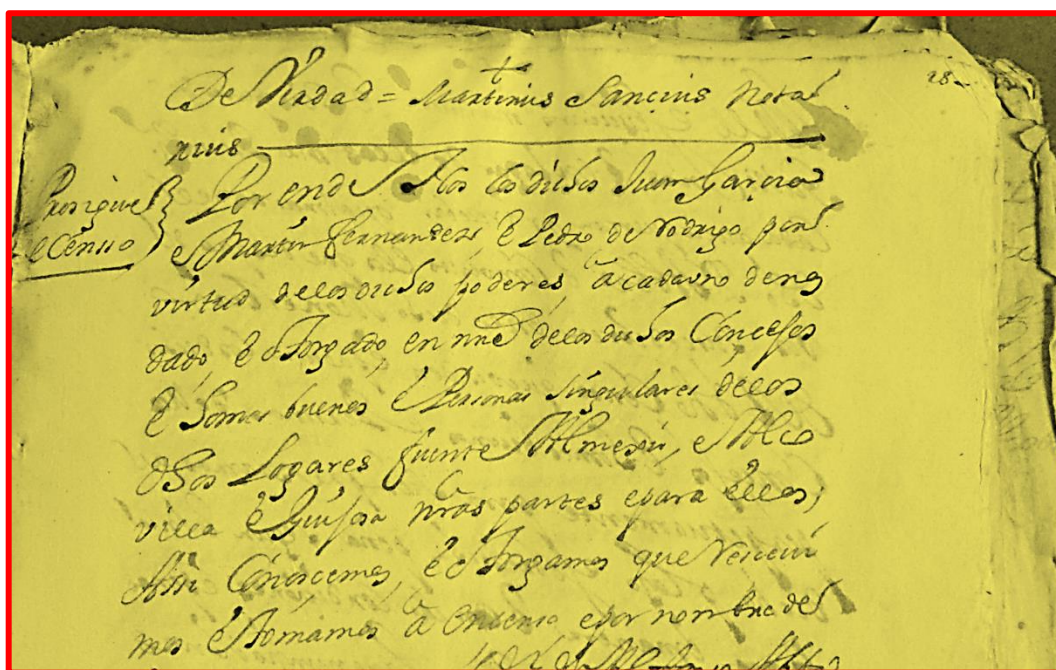 28
De Verdad = Martinus Sancius Nota
rius
Prosigue el
Censo
Por ende Nos los dichos Juan Garcia
e Martin Fernandez, e Pedro de Rodrigo por
virtud de los dichos poderes, a cada uno de nos
dado, e otorgado, en nre de los dichos Concejos
e homes buenos e Personas singulares de los
dhos Logares fuente Almexi, e
villa e nras partes e para ellos;
Assi Conoscemos, e otorgamos que Rescevi
mos e tomamos a enzenso e por nombre de